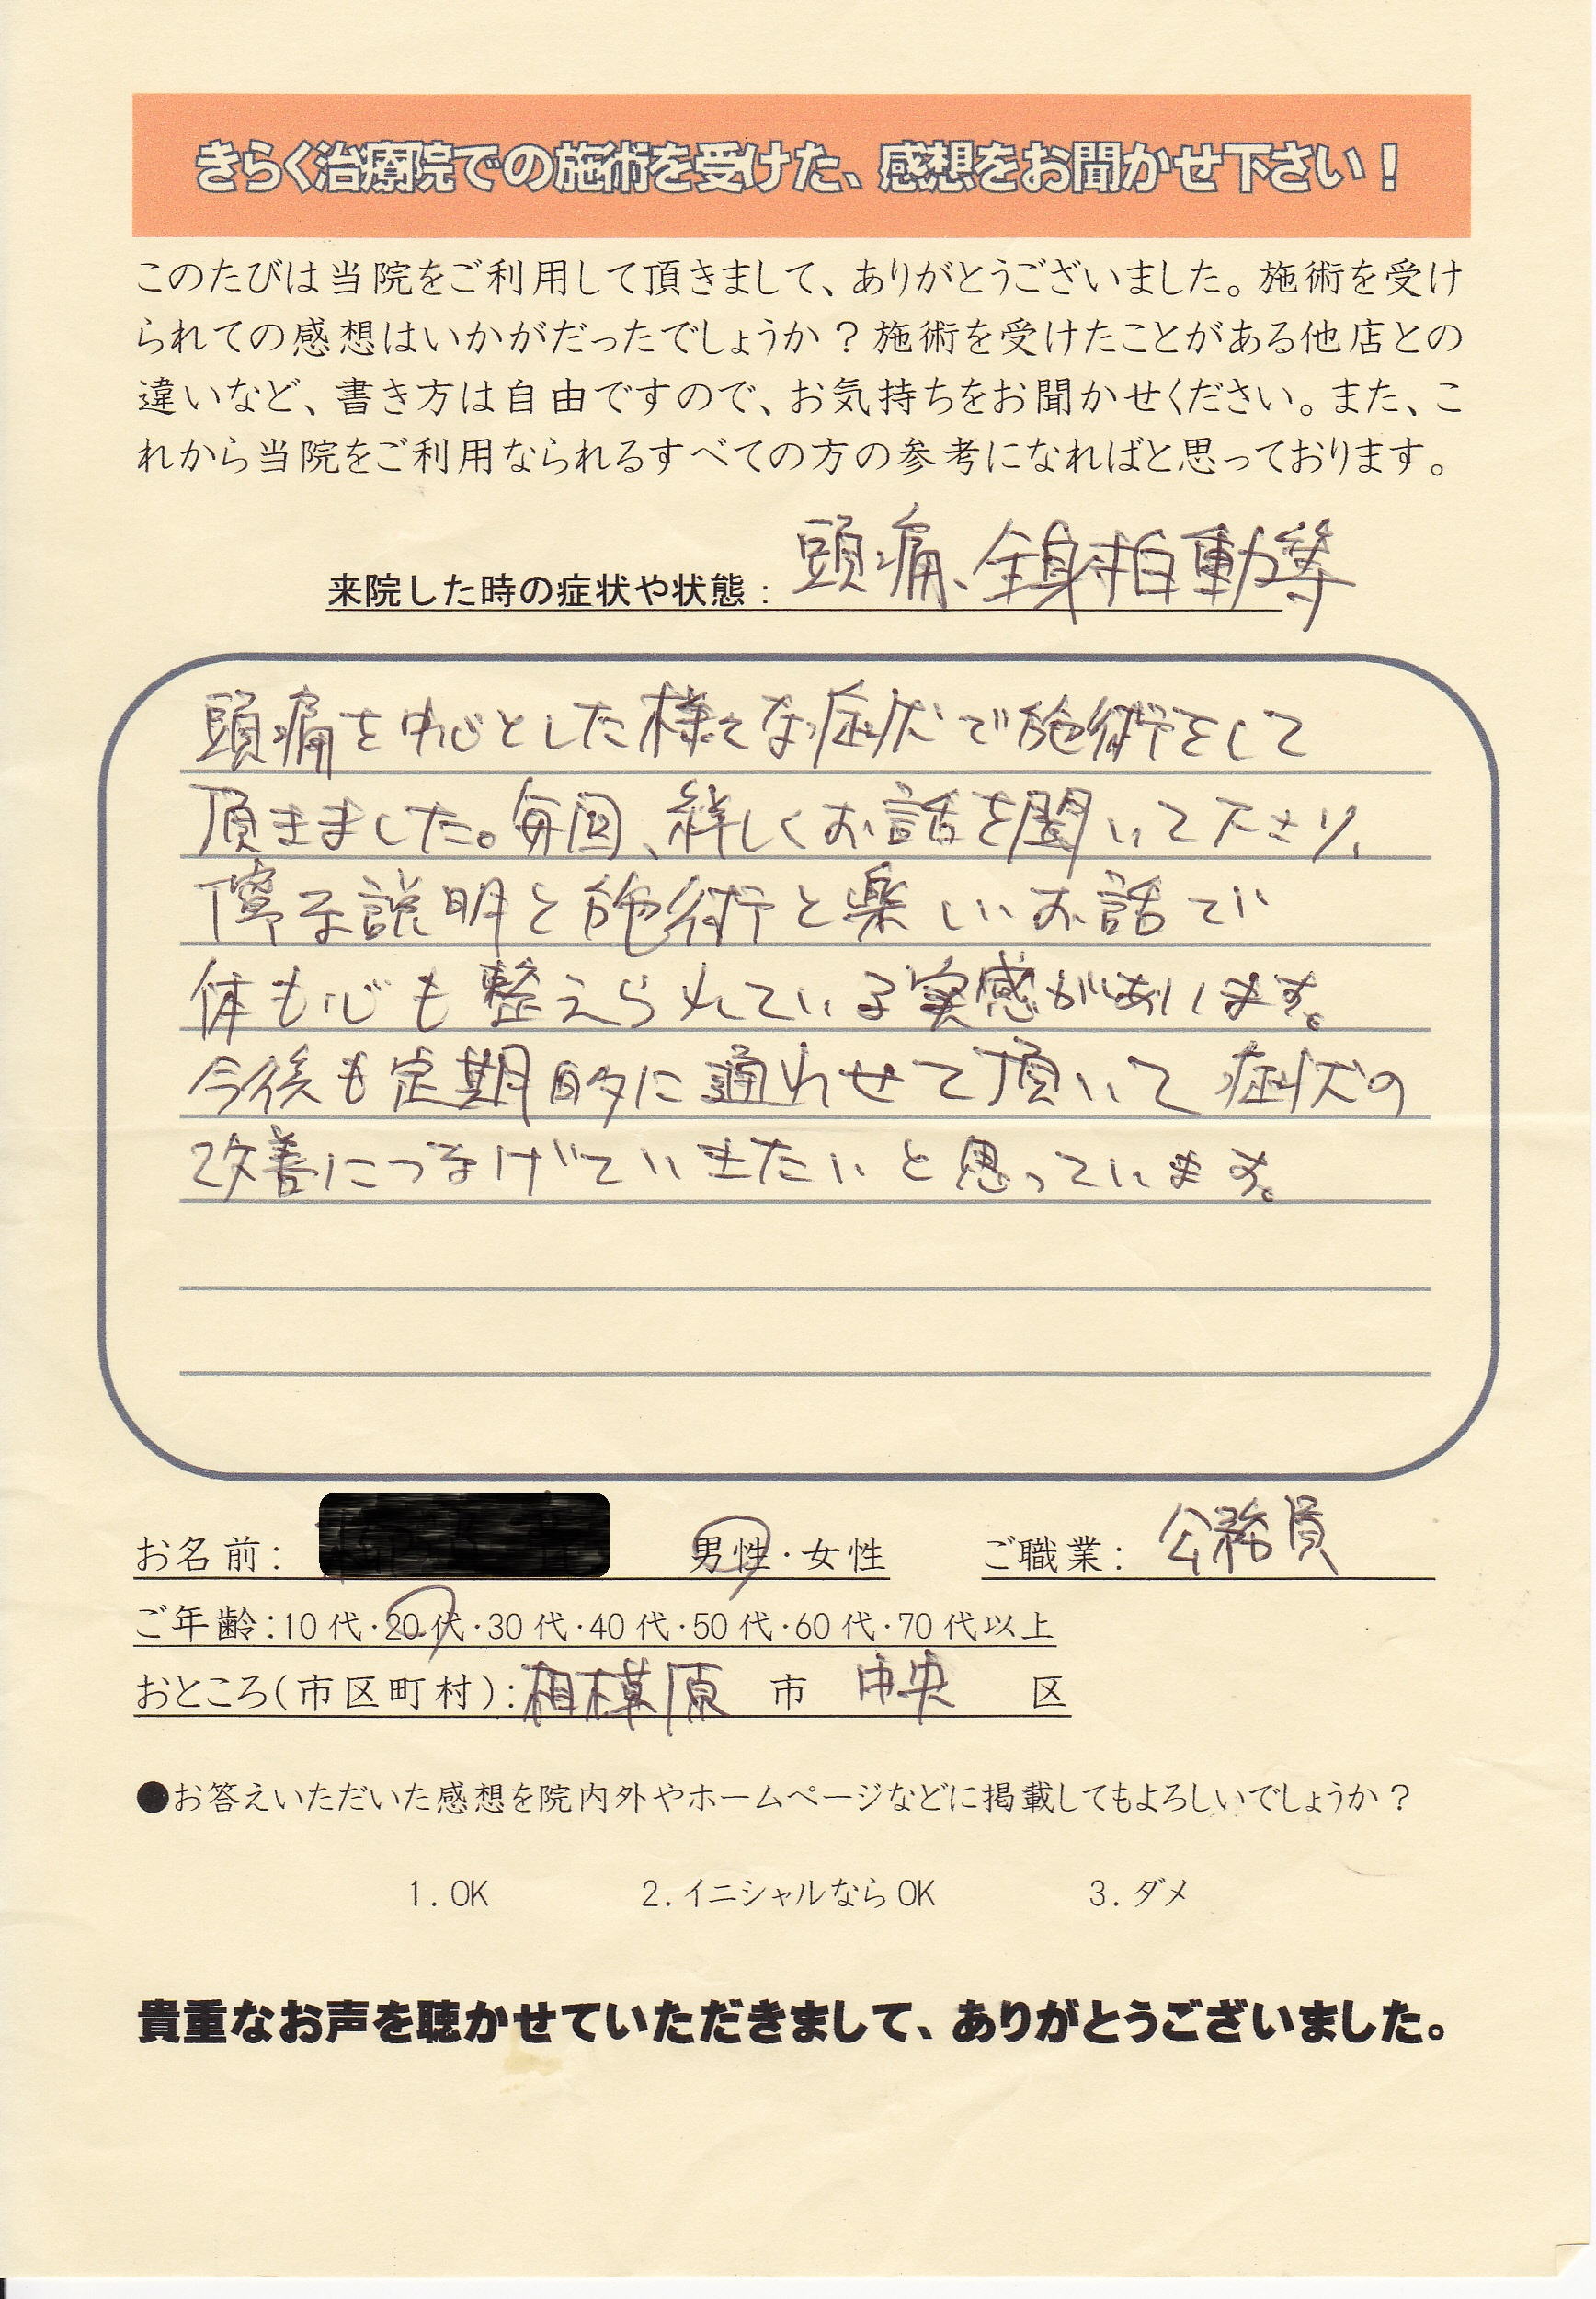 きらく治療院での施術を受けた、感想をお聞かせ下さい！
このたびは当院をご利用して頂きまして、ありがとうございました。施術を受け
られての感想はいかがだったでしょうか？施術を受けたことがある他店との
違いなど、書き方は自由ですので、お気持ちをお聞かせください。また、こ
れから当院をご利用なられるすべての方の参考になればと思っております。
来院した時の症状や状態：頭痛、全身拍動等
頭痛を中心とした様々な症状で施術をして
頂きました。毎回、詳しくお話を聞いて下さり、
丁寧な説明と施術と楽しいお話で
体も心も整えられている実感があります。
今後も定期的に通わせて頂いて症状の
改善につなげていきたいと思っています。
お名前： 男性・女性 ご職業：公務員
ご年齢：10代・20代・30代・40代・50代・60代・70代以上
おところ（市区町村）：相模原 市 中央 区
●お答えいただいた感想を院内外やホームページなどに掲載してもよろしいでしょうか？
1. OK 2. イニシャルならOK 3. ダメ
貴重なお声を聴かせていただきまして、ありがとうございました。